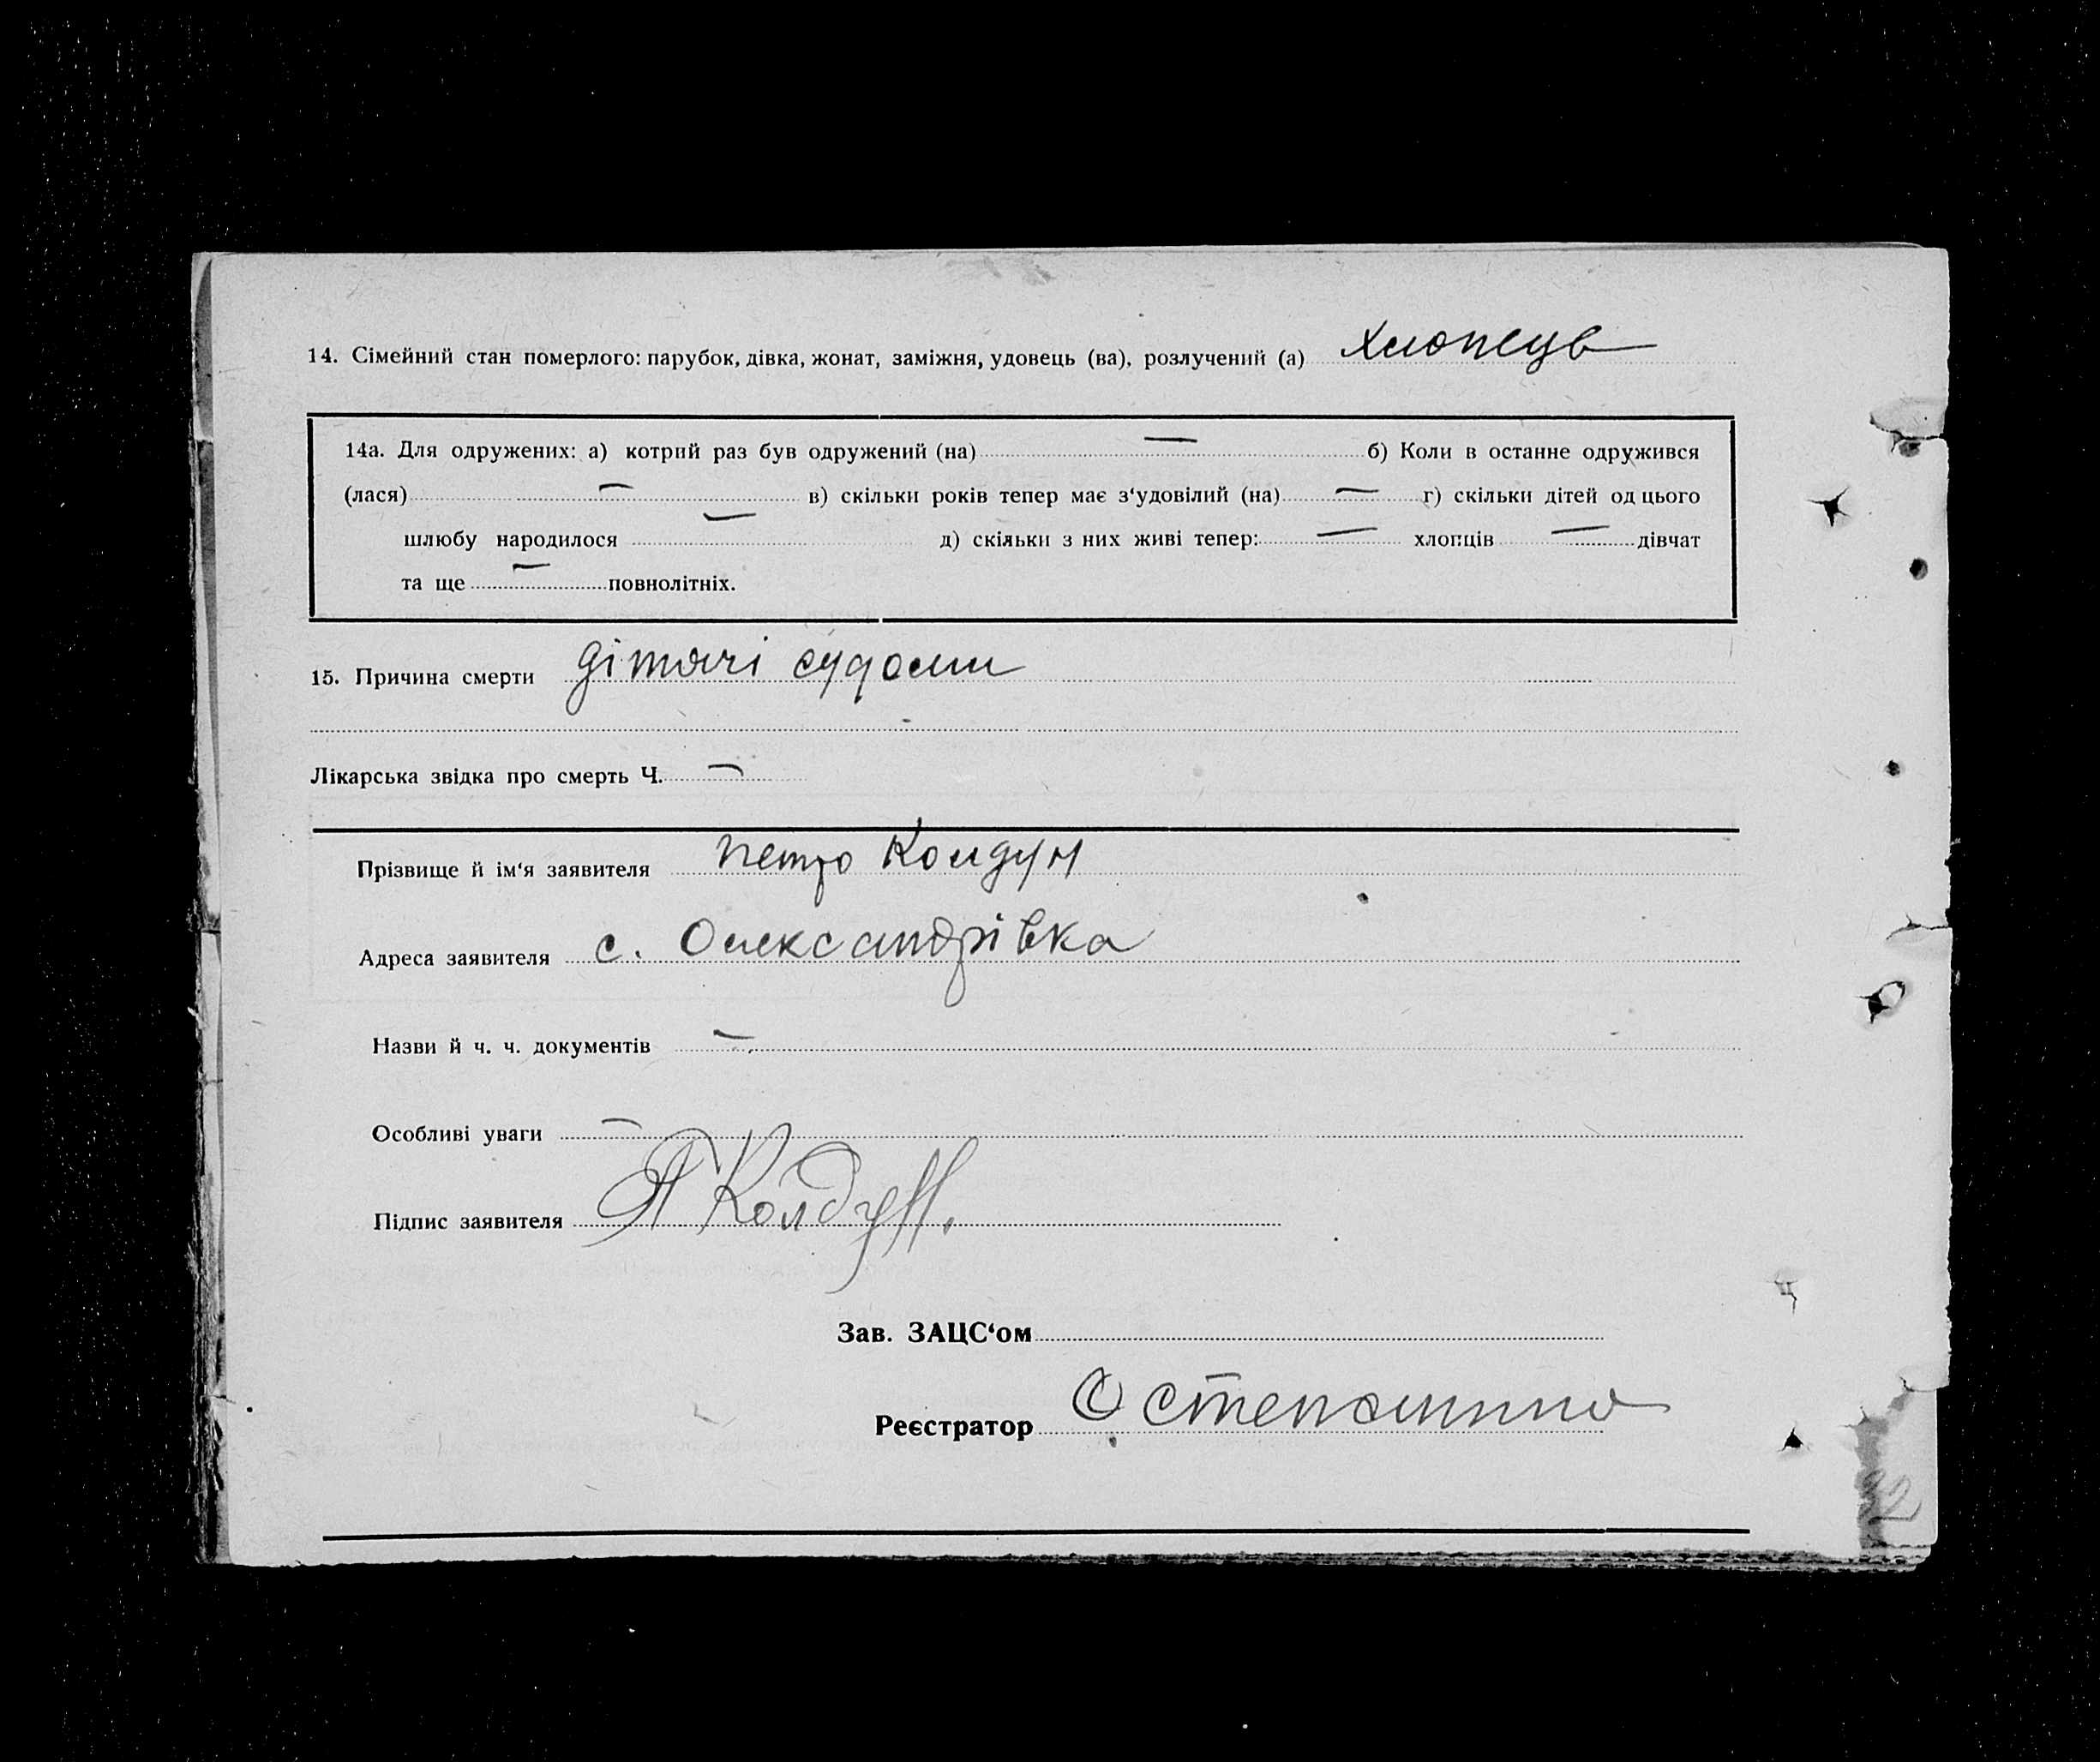 14. Сімейний стан померлого: парубок, дівка, жонат, заміжня, удовець (ва), розлучений (а) хлопець
14а. Для одружених: а) котрий раз був одружений (на) — б) Коли в останне одружився
(лася) — в) скільки років тепер має з‘удовілий (на) — г) скільки дітей од цього
шлюбу народилося — д) скільки з них живі тепер: — хлопців — дівчат
та ще — повнолітніх.
15. Причина смерти дітячі судоми
Лікарська звідка про смерть Ч. —
Прізвище й ім‘я заявителя Петро Колдун
Адреса заявителя с. Олександрівка
Назви й ч. ч. документів —
Особливі уваги —
Підпис заявителя П Колдун.
Зав. ЗАЦС‘ом
Реєстратор